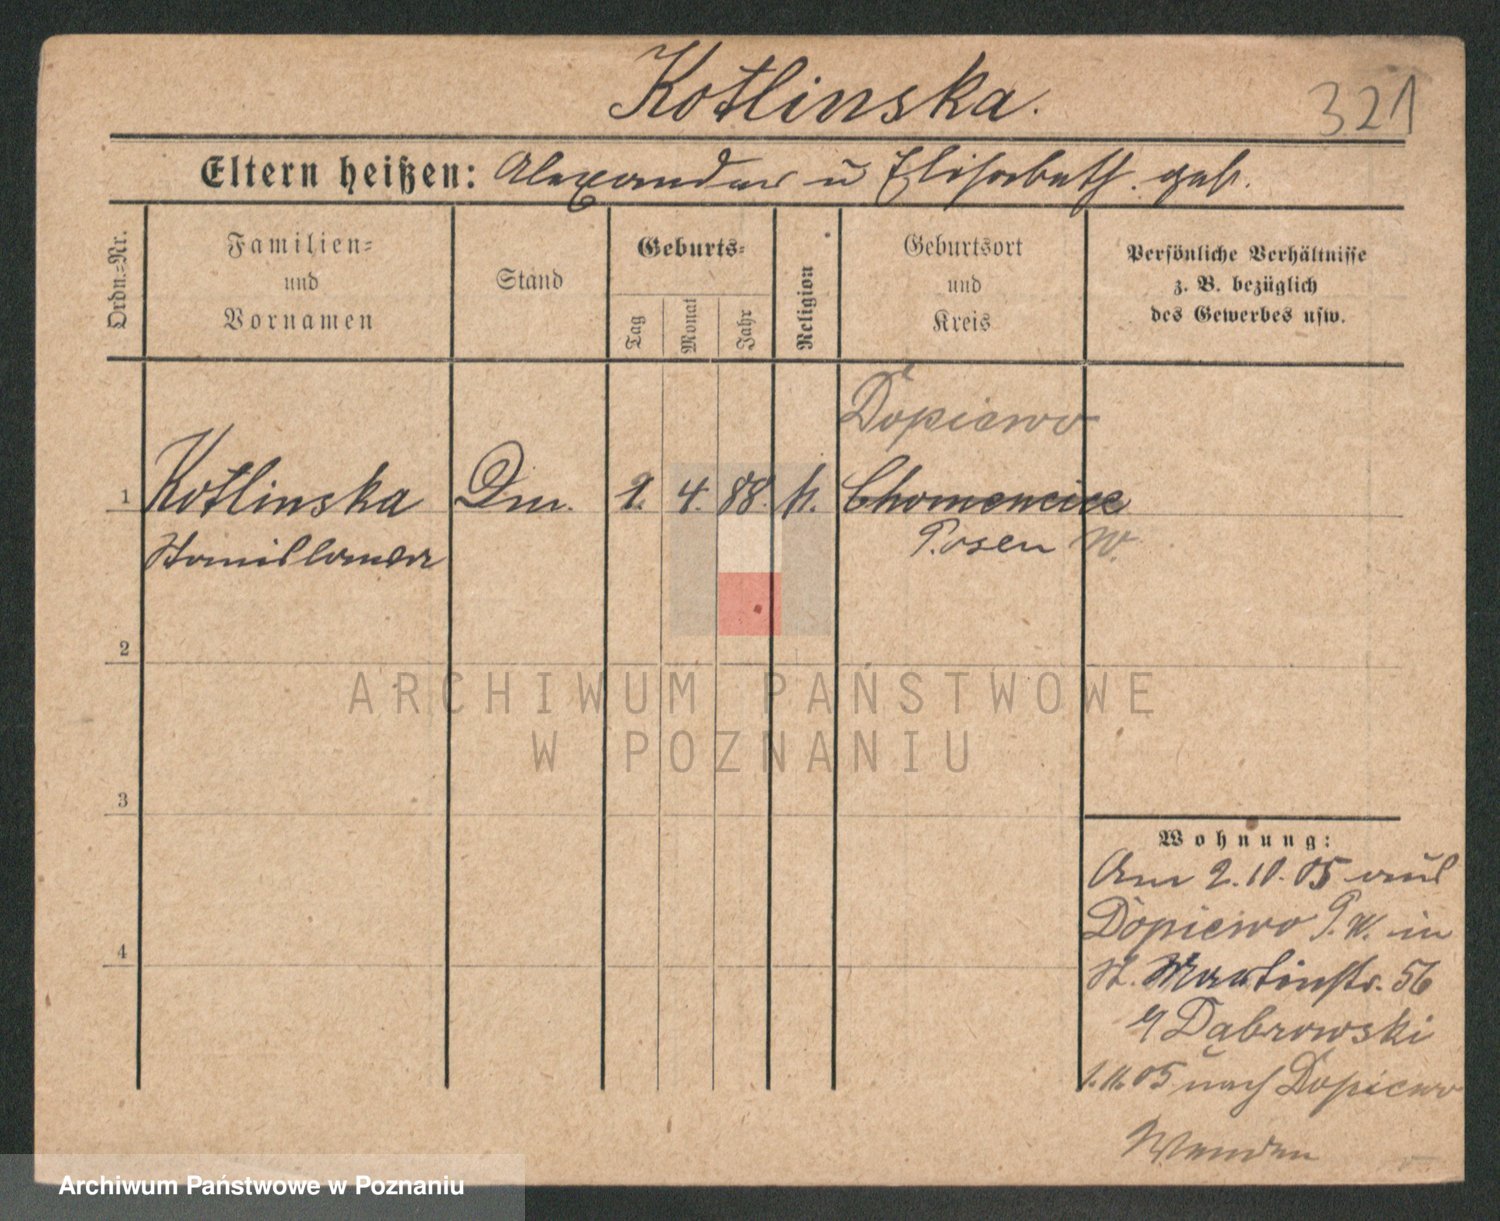 Kotlinska.
321
Eltern heißen: Alexander u Elisabeth. geb.
Ordn.=Nr.
Familien=
und
Vornamen
Stand
Geburts=
Tag
Monat
Jahr
Religion
Geburtsort
und
Kreis
Persönliche Verhältnisse
z. B. bezüglich
des Gewerbes usw.
Dopiewo
1 Kotlinska Dm. 2. 4. 88. k. Chomencice
Posen W.
2
3
4
ARCHIWUM PAŃSTWOWE
W POZNANIU
Wohnung:
Am 2.10.05 aus
Dopiewo P. W. in
St. Martinstr. 56
Dąbrowski
1.11.05 nach Dopiewo
Archiwum Państwowe w Poznaniu